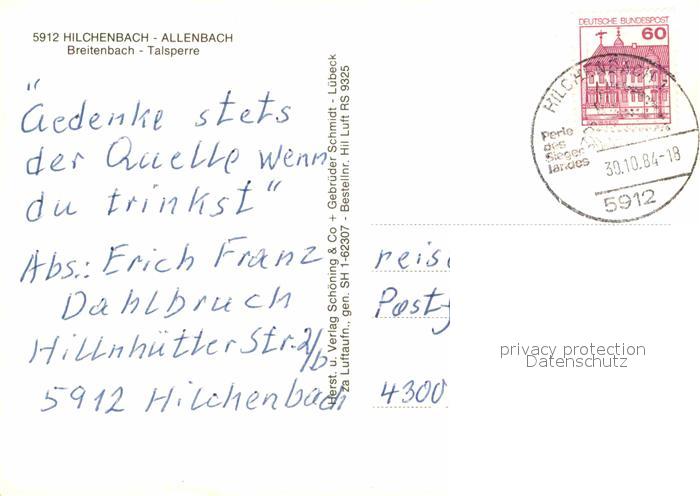 5912 HILCHENBACH - ALLENBACH
Breitenbach - Talsperre
"Gedenke stets
der Quelle wenn
du trinkst"
Abs.: Erich Franz
Dahlbruch
Hillnhütter Str. 2/b
5912 Hilchenbach
Herst. u. Verlag Schöning & Co + Gebrüder Schmidt - Lübeck
za Luftaufn., gen. SH 1-62307 - Bestellnr. Hil Luft RS 9325
DEUTSCHE BUNDESPOST
60
HILCHENBACH
Perle
des
Sieger-
landes
30.10.84-18
5912
reis
Post
4300
privacy protection
Datenschutz